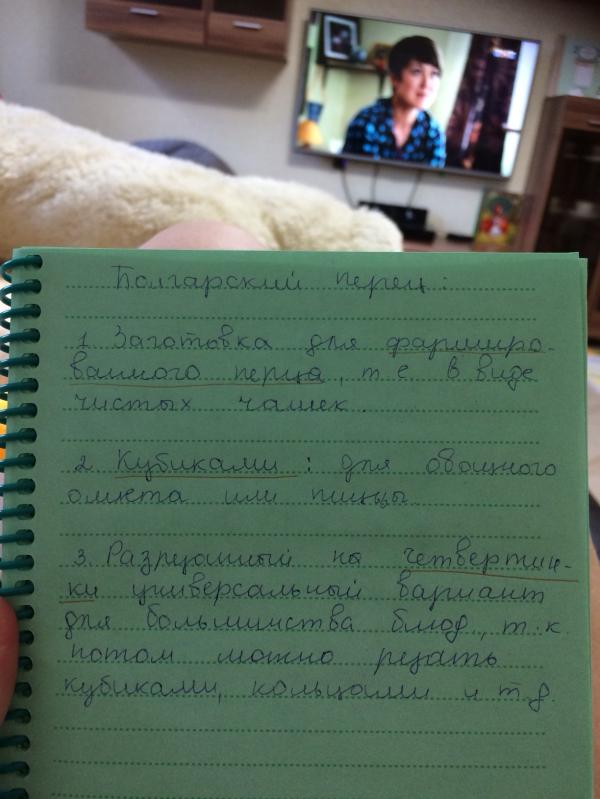 Болгарский перец:
1. Заготовка для фарширо-
ванного перца, т.е. в виде
чистых чашек.
2. Кубиками: для овощного
омлета или пиццы.
3. Разрезанный на четвертин-
ки универсальный вариант
для большинства блюд, т.к.
потом можно резать
кубиками, кольцами и т.д.